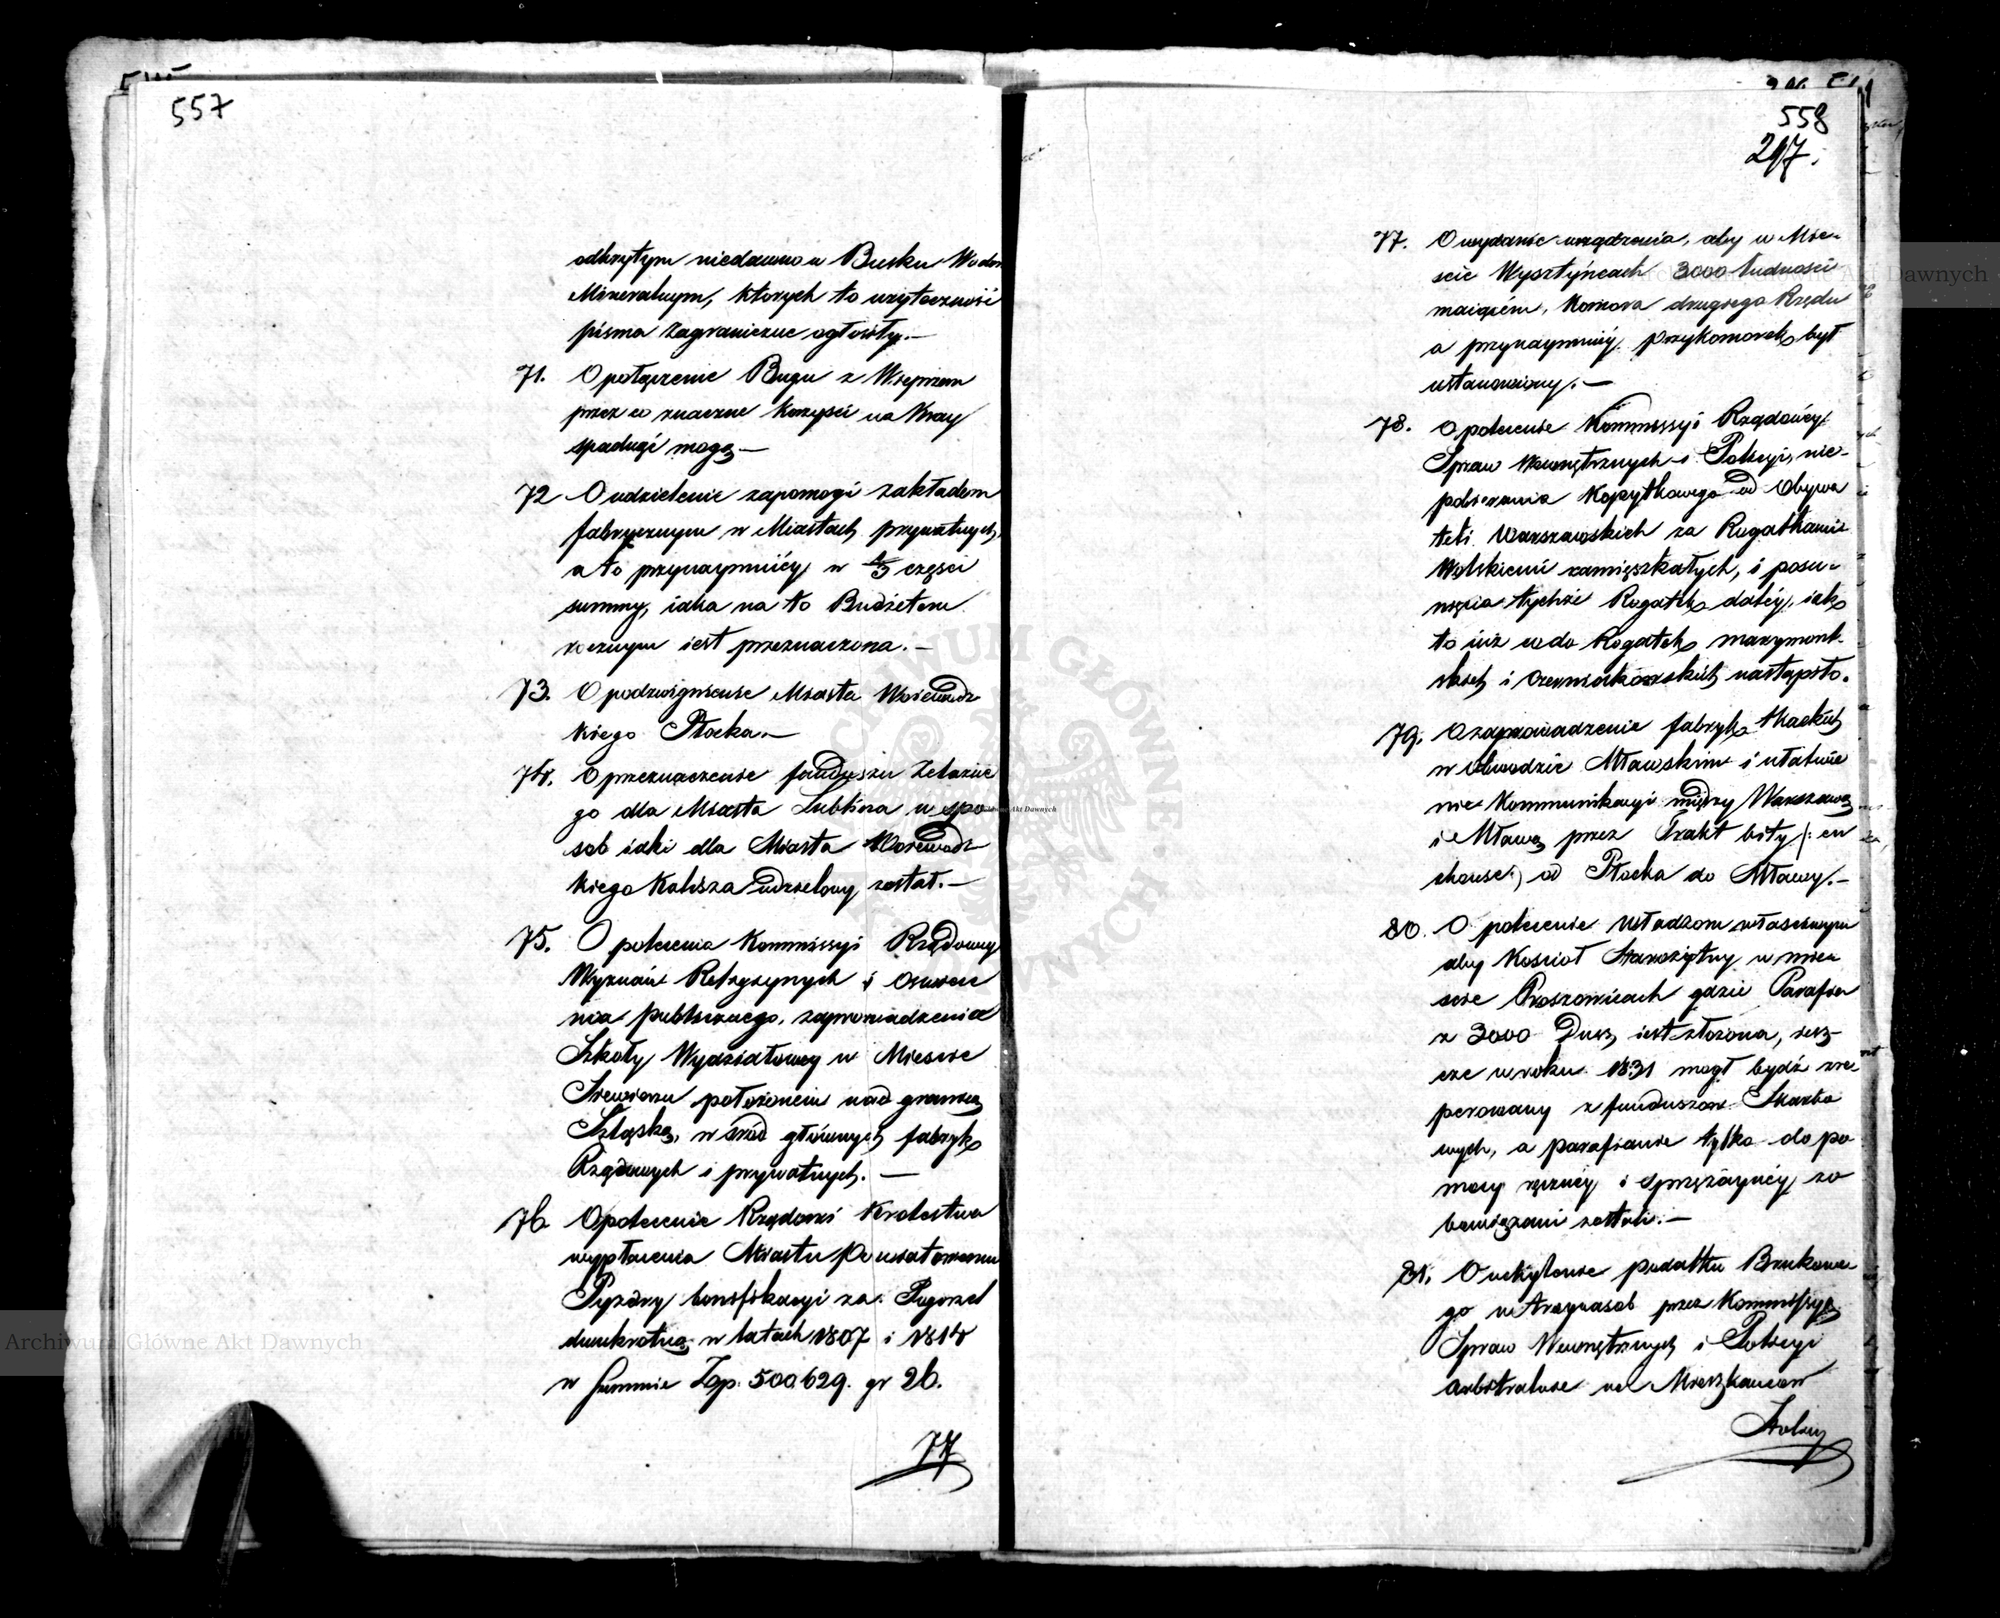 557
odkrytym niedawno w Busku Wodom
Mineralnym, ktorych to użyteczność
pisma zagraniczne ogłosiły.—
71. O połączenie Bugu z Wieprzem
przez co znaczne korzyści na Kray
spadnąć mogą—
72 O udzielenie zapomogi zakładom
fabrycznym w Miastach prywatnych,
a to przynaymniéy w 1/3 części
summy, iaka na to Budżetem
rocznym iest przeznaczona.—
73. O podzwignienie Miasta Woiewodz
kiego Płocka.—
74. O przeznaczenie funduszu Żelazne
go dla Miasta Lublina w spo
sob iaki dla Miasta Woiewodz
kiego Kalisza udzielony został.—
75. O polecenia Kommissyi Rządowéy
Wyznań Religiynych i Oswiece
nia publicznego, zaprowadzenia
Szkoły Wydziałowey w Miescie
Siewierzu położonem nad granicą
Szląską, w śród głównych fabryk
Rządowych i prywatnych.—
76 O polecenie Rządowi Krolestwa
wypłacenia Miastu Powiatowemu
Pyzdry bonifikacyi za Pogorzel
dwukrotną w latach 1807 i 1814
w Summie Złp. 500,629. gr 26.
77
558
297.
77. O wydanie urządzenia, aby w Mie-
scie Wysztyńcach 3000 ludności
maiącém, Komora drugiego Rzędu
a przynaymniéy przykomorek był
ustanowiony.—
78. O polecenie Kommissyi Rządowéy
Spraw Wewnętrznych i Policyi, nie-
pobierania Kopytkowego od Obywa
teli Warszawskich za Rogatkami
Wolskiemi zamięszkałych, i posu-
nięcia tychże Rogatek daléy, iak
to iuż co do Rogatek marymont-
skich i czerniakowskich nastąpiło.
79. O zaprowadzenie fabryk tkackich
w Obwodzie Mławskim i ułatwie
nie Kommunikacyi między Warszawą
i Mławą przez Trakt bity (: en
chaussé:) od Płocka do Mławy.—
80. O polecenie Władzom właściwym
aby Kościoł Starożytny w mie
scie Proszowicach gdzie Parafia
z 3000 Dusz iest złożona, iesz-
cze w roku 1831 mogł bydź re
perowany z funduszow Skarbo
wych, a parafianie tylko do po
mocy ręcznéy i sprzężaynéy zo
bowiązani zostali.—
81. O uchylenie podatku Brukowe
go w trzynasob przez Kommissyą
Spraw Wewnętrznych i Policyi
arbitralnie na Mieszkancow
Stolicy
Archiwum Główne Akt Dawnych
Archiwum Główne Akt Dawnych